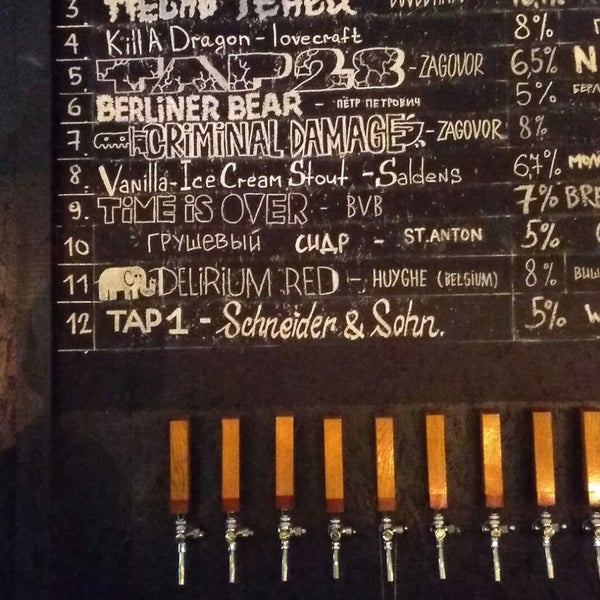 3
4 Kill A Dragon - lovecraft 8%
5. - ZAGOVOR 6,5% N
6 BERLINER BEAR - ПЁТР ПЕТРОВИЧ 5% БЕРЛ
7. CRIMINAL DAMAGE - ZAGOVOR 8%
8. Vanilla-Ice Cream Stout - Saldens 6,7% МОЛ
9. TIME IS OVER - BVB 7% BRE
10 ГРУШЕВЫЙ СИДР - ST.ANTON 5%
11 DELIRIUM RED - HUYGHE (BELGIUM) 8% ВИШ
12 TAP 1 - Schneider & Sohn. 5%